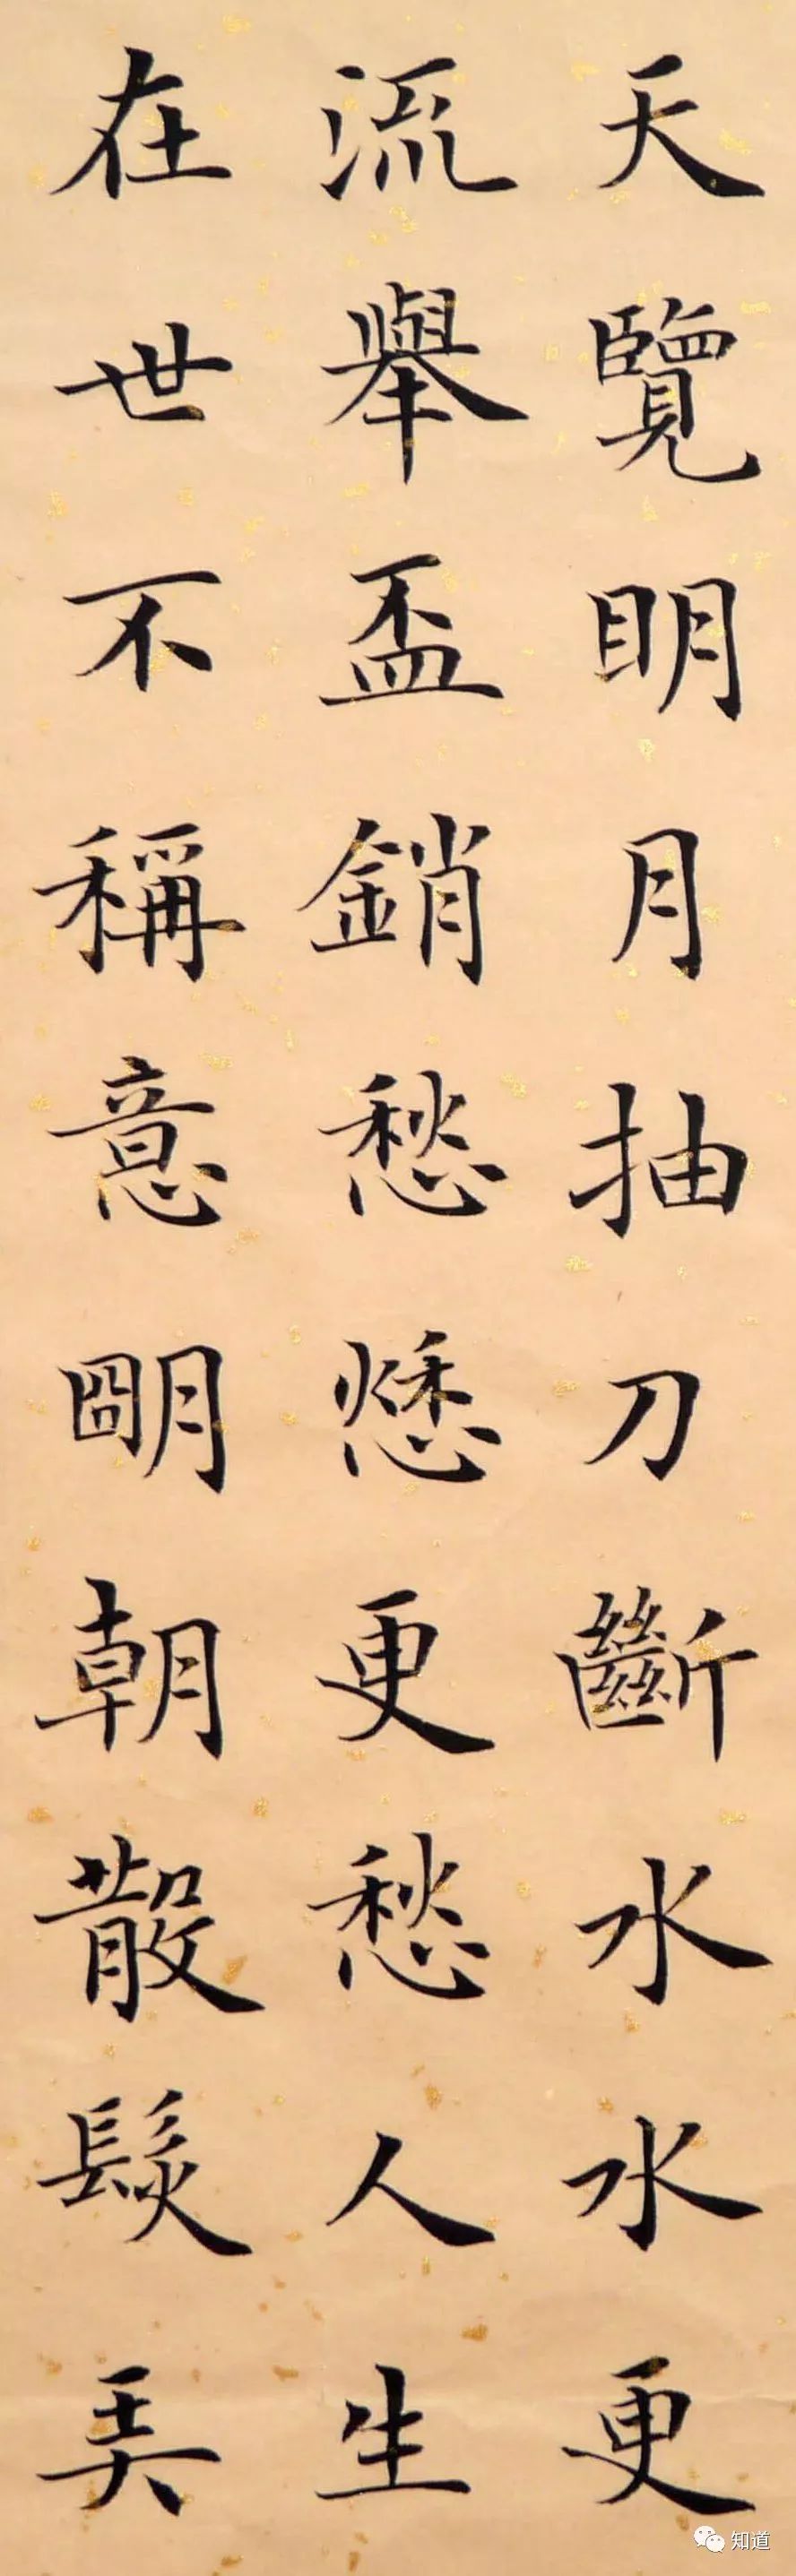 天覽眀月抽刀斷水水更
流舉盃銷愁愁更愁人生
在世不稱意朙朝散髮弄
知道